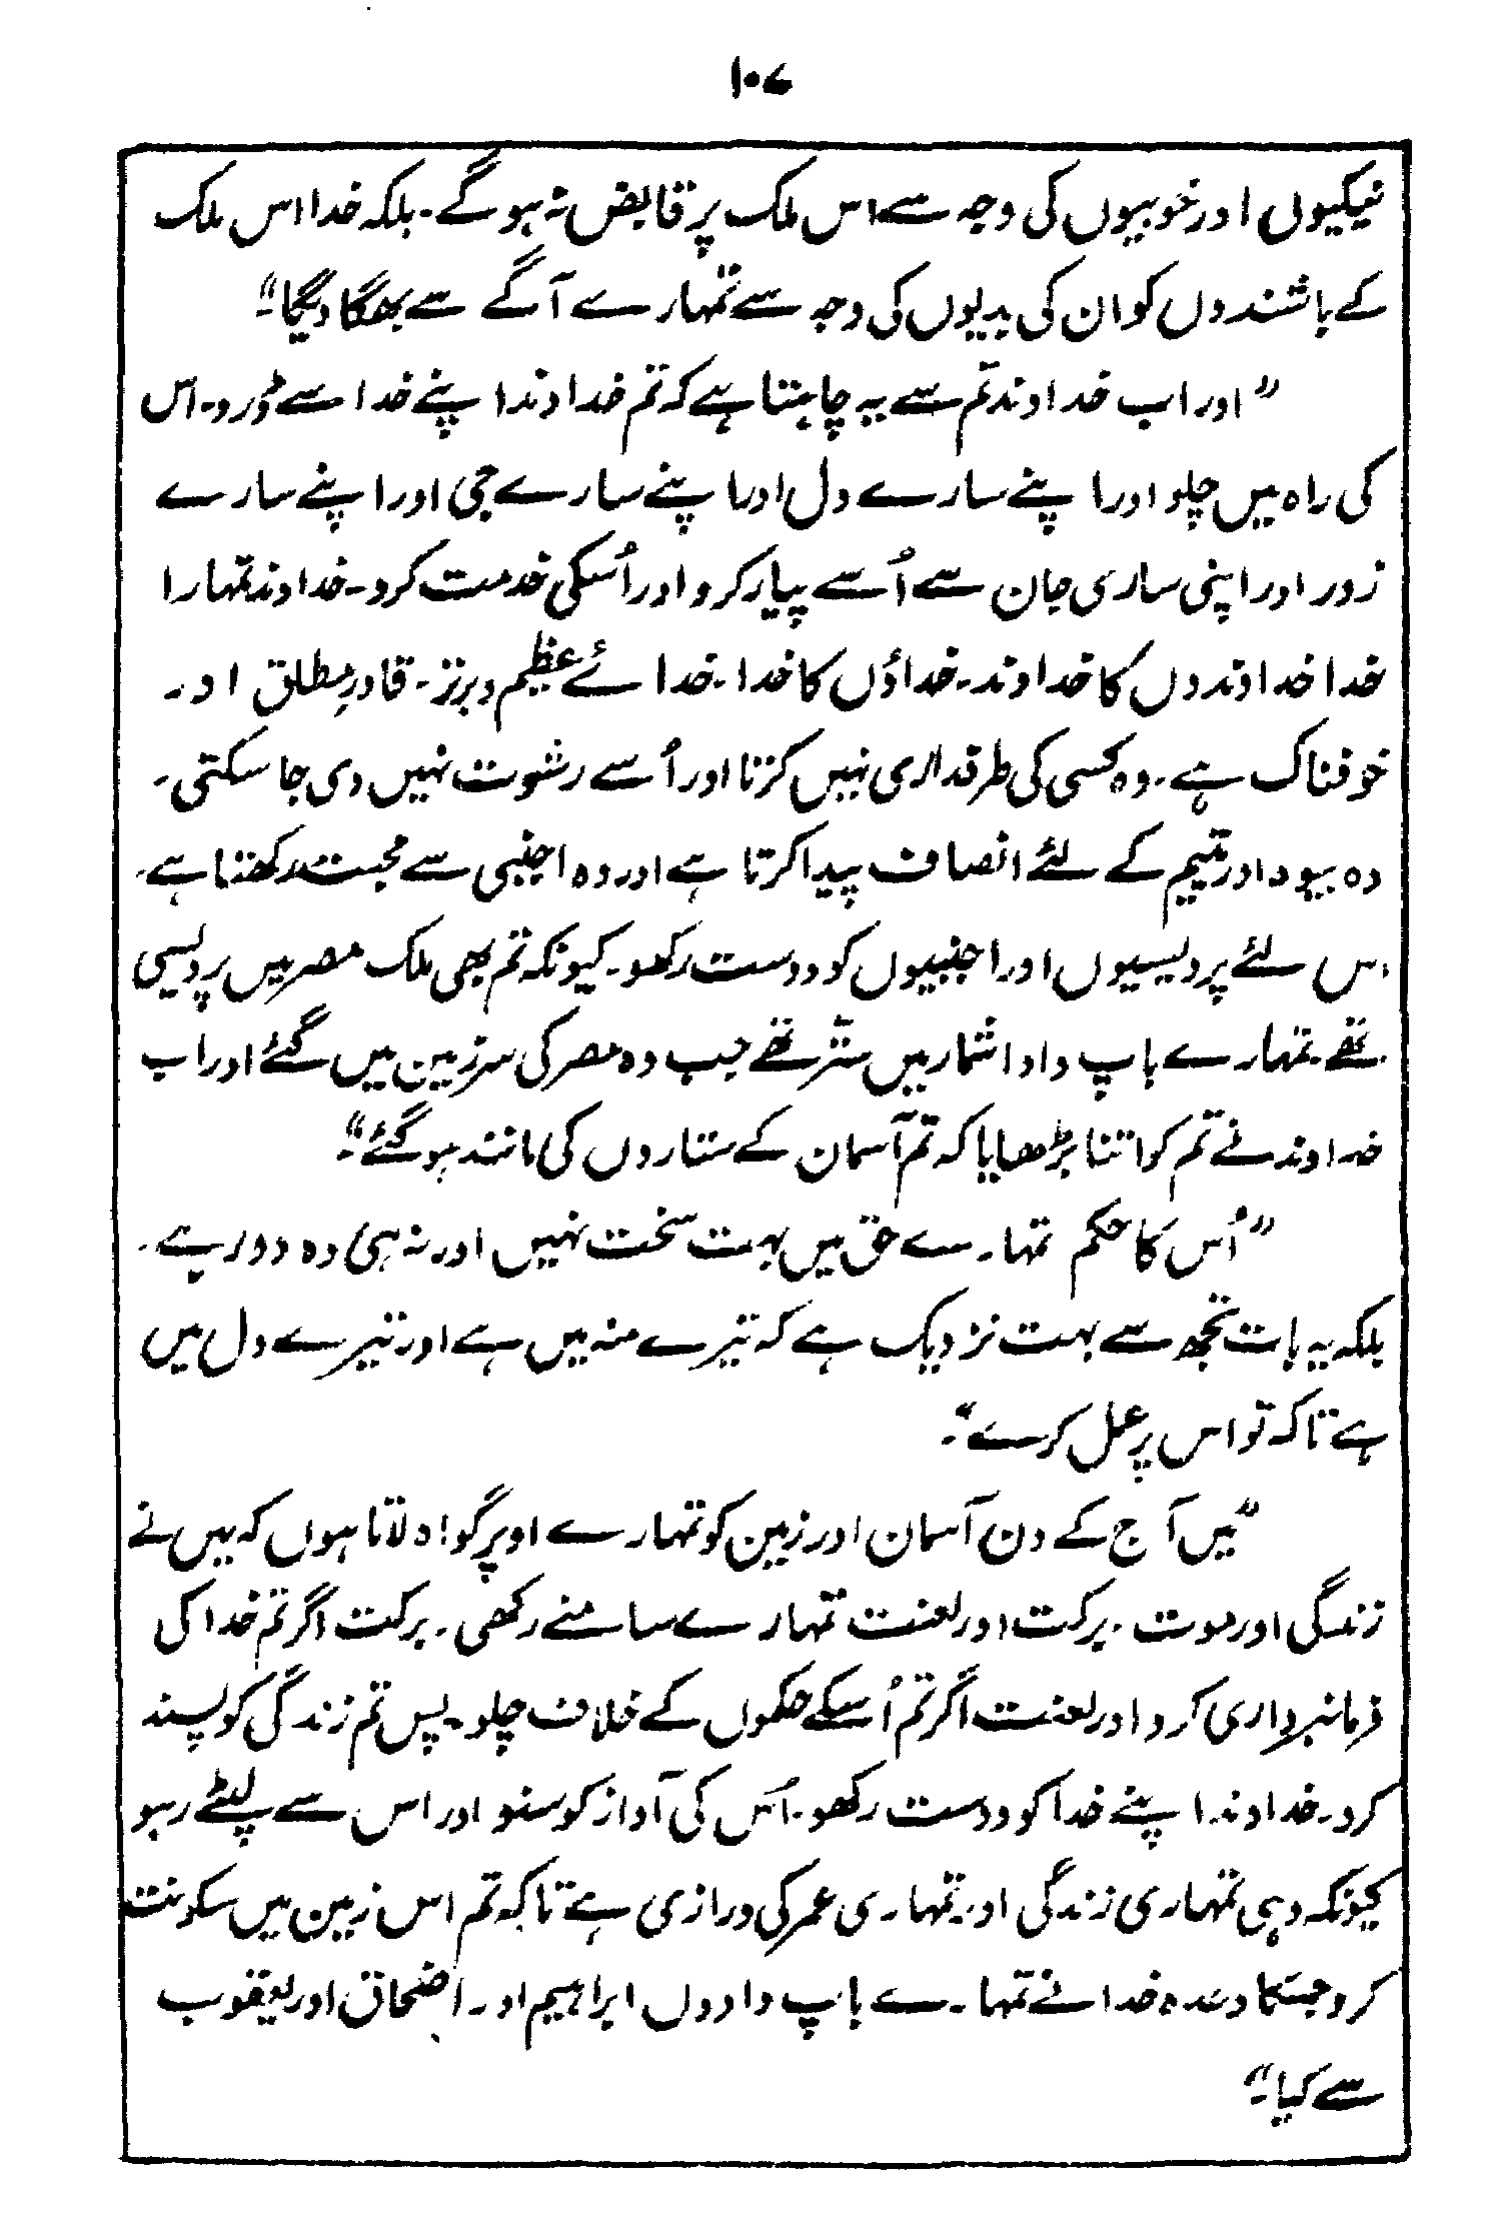 ۱۰۷
نیکیوں اور خوبیوں کی وجہ سے اس ملک پر قابض نہ ہوگے۔ بلکہ خدا اس ملک
کے باشندوں کو ان کی بدیوں کی وجہ سے تمہارے آگے سے بھگا دیگا"۔
"اور اب خداوند تم سے یہ چاہتا ہے کہ تم خداوند اپنے خدا سے ڈرو۔ اس
کی راہ میں چلو اور اپنے سارے دل اور اپنے سارے جی اور اپنے سارے
زور اور اپنی ساری جان سے اُسے پیار کرو اور اُسکی خدمت کرو۔ خداوند تمہارا
خدا خداوندوں کا خداوند۔ خداؤں کا خدا۔ خدائے عظیم و برتر۔ قادرِ مطلق اور
خوفناک ہے۔ وہ کسی کی طرفداری نہیں کرتا اور اُسے رشوت نہیں دی جا سکتی۔
وہ بیوہ اور یتیم کے لئے انصاف پیدا کرتا ہے اور وہ اجنبی سے محبت رکھتا ہے۔
اس لئے پردیسیوں اور اجنبیوں کو دوست رکھو۔ کیونکہ تم بھی ملک مصر میں پردیسی
تھے۔ تمہارے باپ دادا شمار میں ستّر تھے جب وہ مصر کی سرزمین میں گئے اور اب
خداوند نے تم کو اتنا بڑھایا کہ تم آسمان کے ستاروں کی مانند ہو گئے"۔
"اُس کا حکم تمہارے حق میں بہت سخت نہیں اور نہ ہی وہ دور ہے۔
بلکہ یہ بات تجھ سے بہت نزدیک ہے کہ تیرے منہ میں ہے اور تیرے دل میں
ہے تاکہ تو اس پر عمل کرے"۔
"میں آج کے دن آسمان اور زمین کو تمہارے اوپر گواہ لاتا ہوں کہ میں نے
زندگی اور موت۔ برکت اور لعنت تمہارے سامنے رکھی۔ برکت اگر تم خدا کی
فرمانبرداری کرو اور لعنت اگر تم اُسکے حکموں کے خلاف چلو۔ پس تم زندگی کو پسند
کرو۔ خداوند اپنے خدا کو دوست رکھو۔ اُس کی آواز کو سنو اور اس سے لپٹے رہو
کیونکہ وہی تمہاری زندگی اور تمہاری عمر کی درازی ہے تاکہ تم اس زمین میں سکونت
کرو جسکا وعدہ خدا نے تمہارے باپ دادوں ابراہیم اور اضحاق اور یعقوب
سے کیا۔"